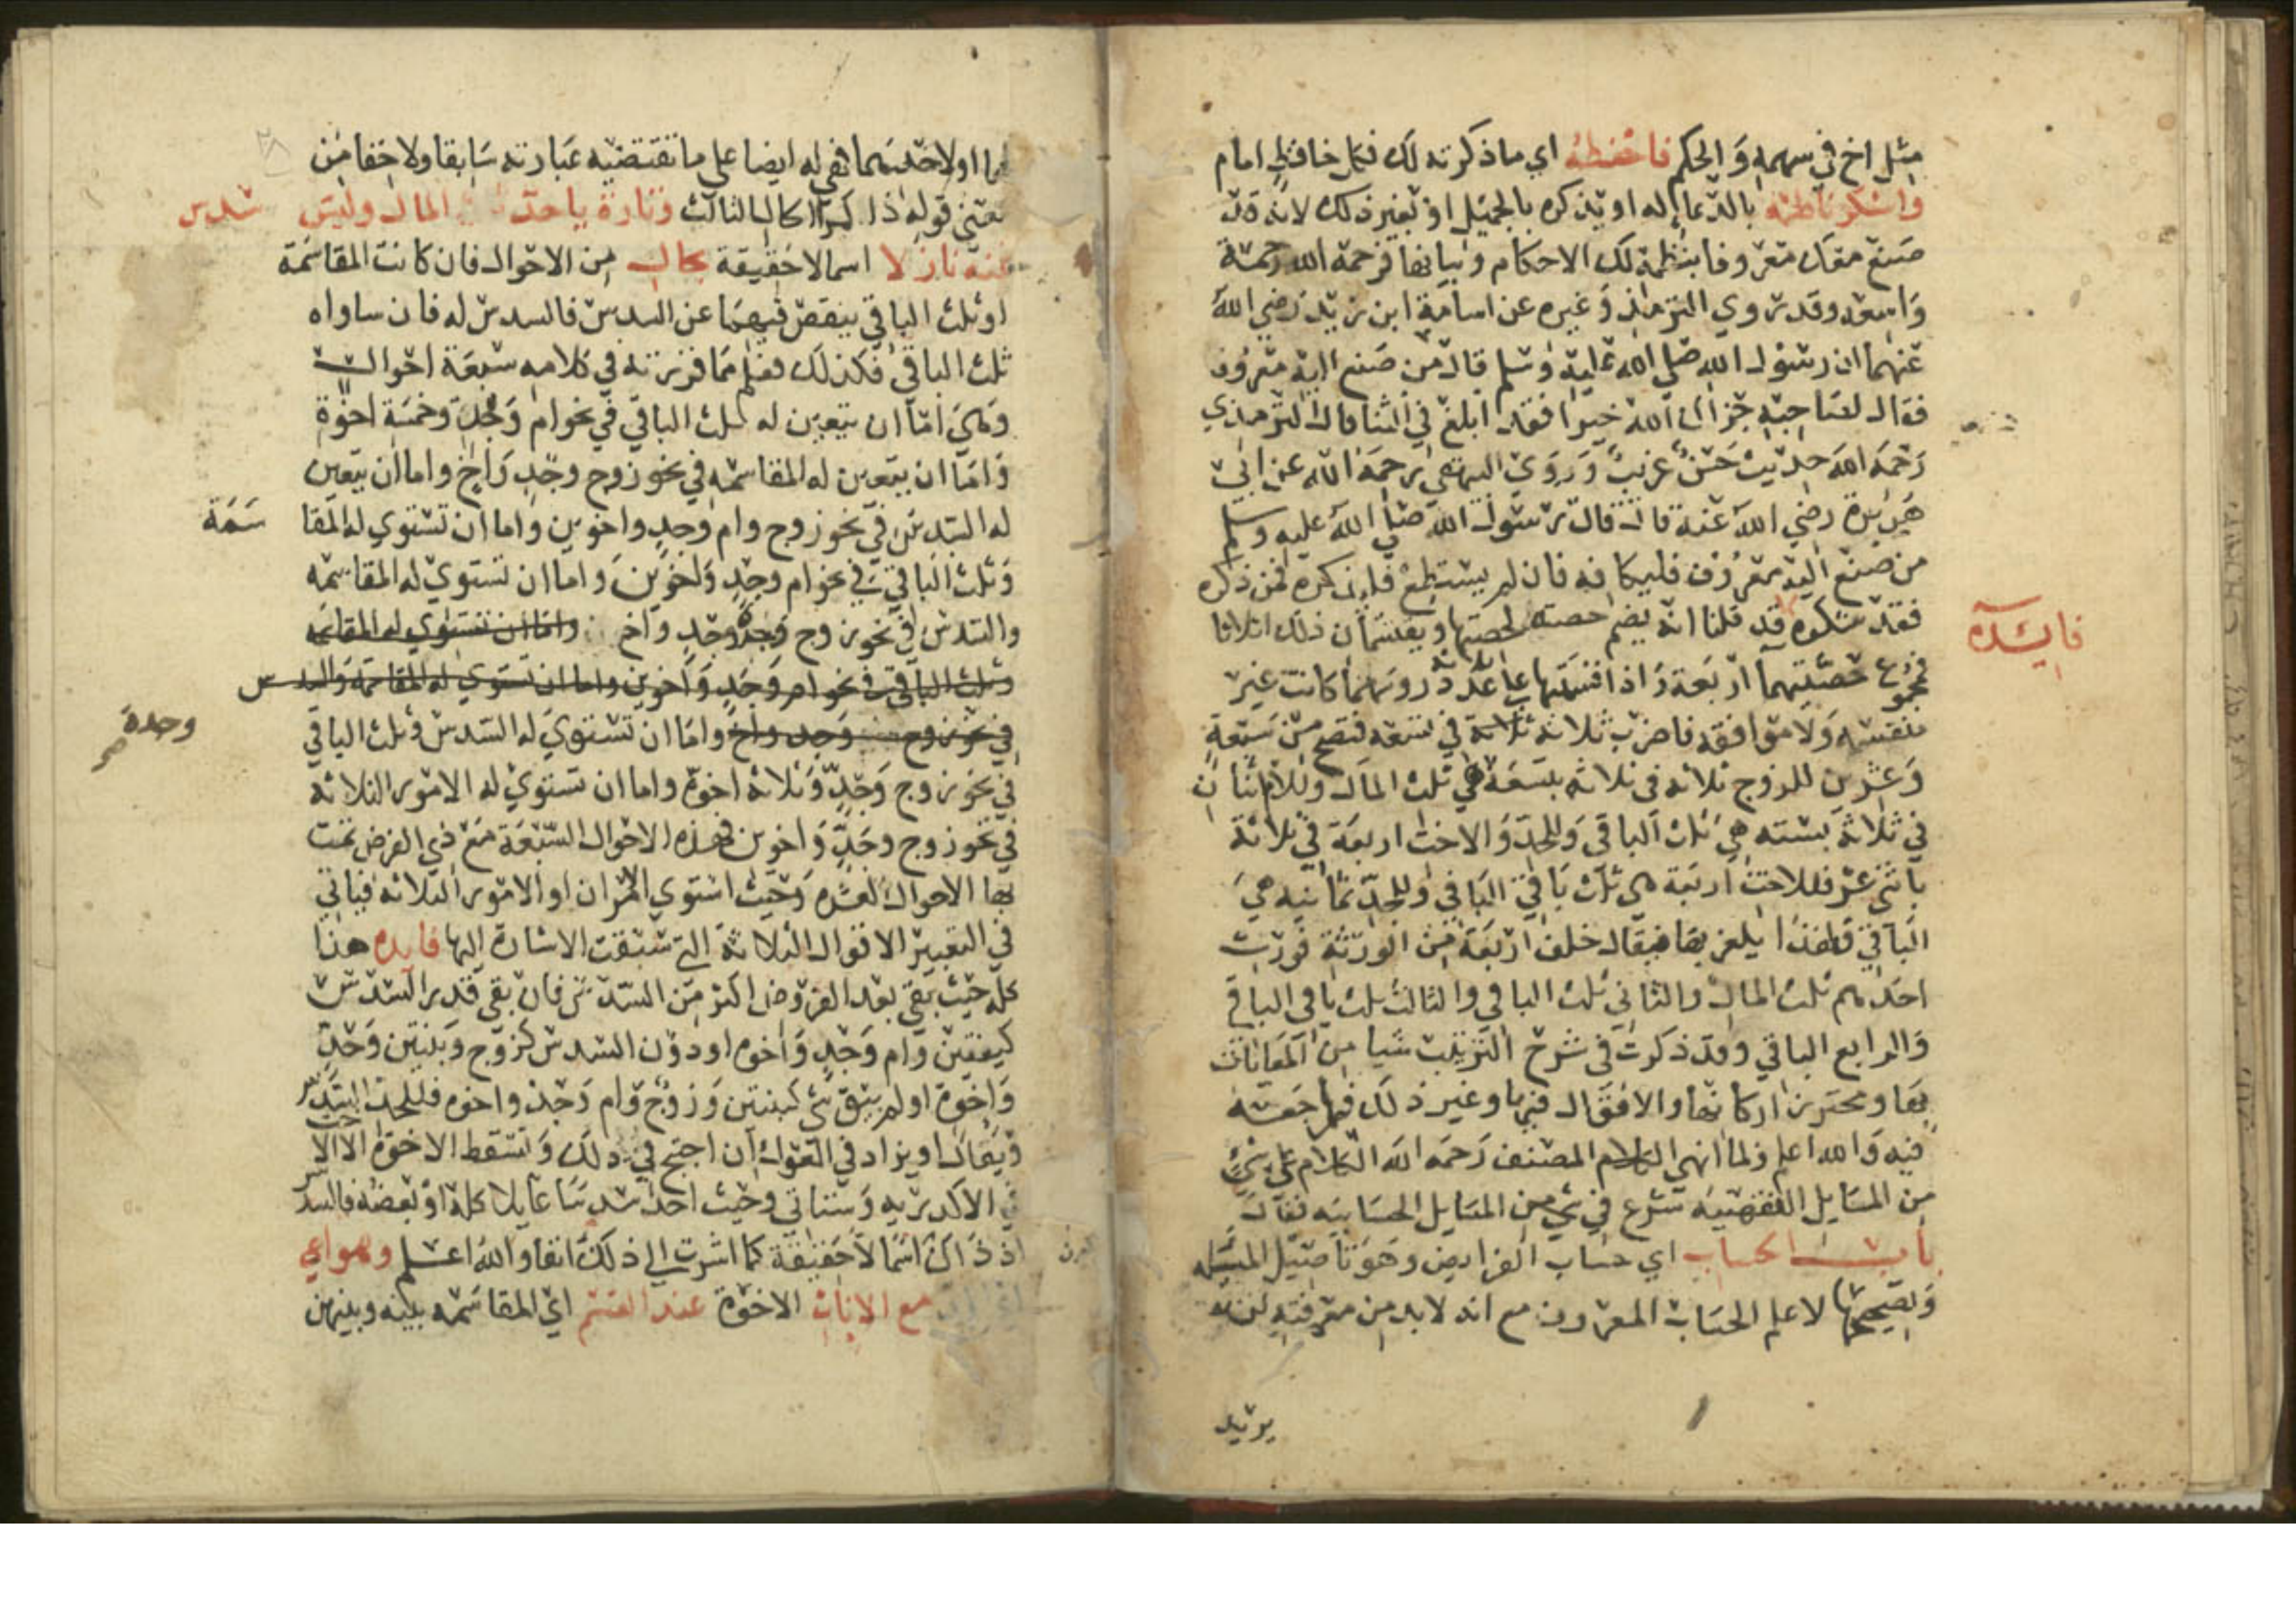 مثل اخ في سهمه والحكم فاحفظه اي ما ذكرته لك فكل حافظ امام
واشكر ناظمه بالدعا له او يذكره بالجميل او بغير ذلك لانه قد
صنع معك معروفا بنظمه لك الاحكام وبيانها فرحمه الله رحمة
واسعه وقد روي الترمذي وغيره عن اسامة ابن زيد رضي الله
عنهما ان رسول الله صلى الله عليه وسلم قال من صنع اليه معروف
فقال لصاحبه جزاك الله خيرا فقد ابلغ في الثنا قال الترمذي
رحمه الله حديث حسن غريب وروي البيهقي رحمه الله عن ابي
هريرة رضي الله عنه قال قال رسول الله صلى الله عليه وسلم
من صنع اليه معروف فليكافه فان لم يستطع فليذكره فمن ذكره
فقد شكره قد قلنا انه يضم حصته لحصتها ويقتسمان ذلك اثلاثا
فايده
فمجموع حصتيهما اربعة واذا قسمتها على عدد روسهما كانت غير
منقسمه ولا موافقه فاضرب ثلاثة في تسعه فتصح من سبعة
وعشرين للزوج ثلاثه في ثلاثه بتسعة هي ثلث المال وللام اثنان
في ثلاثة بسته هي ثلث الباقي وللجد والاخت اربعة في ثلاثة
باثني عشر فللاخت اربعة هي ثلث باقي الباقي وللجد ثمانيه هي
الباقي فلهذا يلغز بها فيقال خلف اربعة من الورثة فورث
احدهم ثلث المال والثاني ثلث الباقي والثالث ثلث باقي الباقي
والرابع الباقي وقد ذكرت في شرح الترتيب شيا من المعاياات
بها ومحترز اركانها والاقوال فيها وغير ذلك فراجعه
فيه والله اعلم ولما انهى الكلام المصنف رحمه الله الكلام على شي
من المسايل الفقهيه شرع في شي من المسايل الحسابيه فقال
باب الحساب اي حساب الفرايض وهو تاصيل المسيله
وتصحيحها لا علم الحساب المعروف مع انه لا بد من معرفته لمن
يريد
او لاحدهما فهي له ايضا على ما تقتضيه عبارته سابقا ولا خفا من
معنى قوله ذا كمرا كالبالثالث وتارة ياخذ سدس المال وليس
عنه نازلا اسما لا حقيقة بحال من الاحوال فان كانت المقاسمة
او ثلث الباقي ينقص فيهما عن السدس فالسدس له فان ساواه
ثلث الباقي فكذلك فعلم مما قررته في كلامه سبعة احوال
وهي اما ان يتعين له ثلث الباقي في نحو ام وجد وخمسة اخوة
واما ان يتعين له المقاسمه في نحو زوج وجد واخ واما ان يتعين
له السدس في نحو زوج وام وجد واخوين واما ان تستوي له المقا سمة
وثلث الباقي في نحو ام وجد واخوين واما ان تستوي له المقاسمه
والسدس في نحو زوج وجدة وجد واخ واما ان تستوي له المقاسمه
وثلث الباقي في نحو ام وجد واخوين واما ان تستوي له المقاسمة والسدس
في نحو زوج وجد واخ واما ان تستوي له السدس وثلث الباقي
وجدة
صح
في نحو زوج وجد وثلاثة اخوة واما ان تستوي له الامور الثلاثه
في نحو زوج وجد واخوين فهذه الاحوال السبعة مع ذي الفرض تمت
بها الاحوال العشره وحيث استوي الامران او الامور الثلاثه فياتي
في التعبير الاقوال الثلاثة التي سبقت الاشارة اليها فايده هذا
كله حيث بقي بعد الفروض اكثر من السدس فان بقي قدر السدس
كبنتين وام وجد واخوه او دون السدس كزوج وبنتين وجد
واخوة او لم يبق شي كبنتين وزوج وام وجد واخوه فللجد السدس
ويعال او يزاد في العول ان احتيج في ذلك وتسقط الاخوة الا الاخت
في الاكدريه وستاتي وحيث اخذ سدسا عايلا كله او بعضه فالسدس
اذ ذاك اسما لا حقيقة كما اشرت الى ذلك انفا والله اعلم وهو اعي
مع الاناث الاخوة عند القسم اي المقاسمه بينه وبينهن